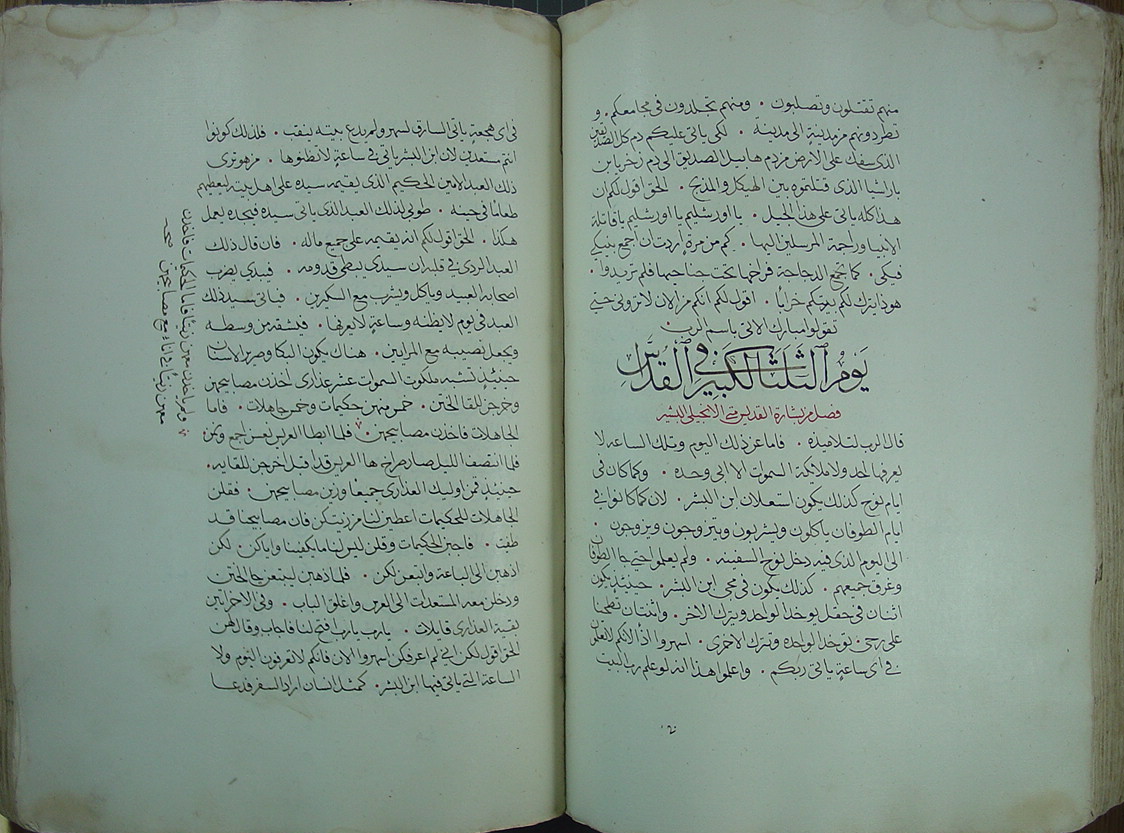 منهم تقتلون وتصلبون . ومنهم تجلدون في مجامعكم . و
تطردونهم من مدينة الى مدينة . لكي ياتي عليكم دم كل الصديقين
الذي سفك على الارض من دم هابيل الصديق الى دم زخريا بن
باراشيا الذي قتلتموه بين الهيكل والمذبح . الحق اقول لكم ان
هذا كله ياتي على هذا الجيل . يا اورشليم يا اورشليم يا قاتلة
الانبيا وراجمة المرسلين اليها . كم من مرة اردت ان اجمع بنيكي
فيكي . كما تجمع الدجاجة فراخها تحت جناحيها فلم تريدوا .
هوذا يترك لكم بيتكم خرابًا . اقول لكم انكم من الان لا تروني حتي
تقولوا مبارك الاتي باسم الرب
يوم الثلثا الكبير في القدس
فصل من بشارة القديس متى الانجيلي البشير
قال الرب لتلاميذه . فاما عن ذلك اليوم وتلك الساعه لا
يعرفها احد ولا ملايكة السموت الا ابي وحده . وكما كان في
ايام نوح كذلك يكون استعلان ابن البشر . لان كما كانوا في
ايام الطوفان ياكلون ويشربون ويتزوجون ويزوجون .
الى اليوم الذي فيه دخل نوح السفينه . ولم يعلموا حتي جا الطوفان
وغرق جميعهم . كذلك يكون في مجي ابن البشر . حينيذٍ يكون
اثنان في حقل يوخذ الواحد ويترك الاخر . واثنتان تطحنا
على رحي . يوخذ الواحده وتترك الاخرى . اسهروا اذًا لانكم لا تعلمون
في اي ساعةٍ ياتي ربكم . واعلموا هذا انه لو علم رب البيت
في اي هجعةٍ ياتي السارق لسهر ولم يدع بيته ينقب . فلذلك كونوا
انتم مستعدين لان ابن البشر ياتي في ساعةٍ لا تظنوها . من هو ترى
ذلك العبد الامين الحكيم الذي يقيمه سيده على اهل بيته ليعطيهم
طعامًا في حينه . طوبى لذلك العبد الذي ياتي سيده فيجده يعمل
هكذا . الحق اقول لكم انه يقيمه على جميع ماله . فان قال ذلك
العبد الردي في قلبه ان سيدي يبطي قدومه . فيبدي يضرب
اصحابه العبيد وياكل ويشرب مع السكيرين . فياتي سيد ذلك
العبد في يوم لا يظنه وساعةٍ لا يعرفها . فيشقه من وسطه
ويجعل نصيبه مع المرايين . هناك يكون البكا وصرير الاسنان
حينيذٍ تشبه ملكوت السموات عشر عذارى اخذن مصابيحهن
وخرجن للقا الختن . خمس منهن حكيمات وخمس جاهلات . فاما
الجاهلات فاخذن مصابيحهن . فلما ابطا العريس نعسن اجمع ونمن
فلما انتصف الليل صار صراخ ها العريس قد اقبل اخرجن للقايه .
حينيذٍ قمن اوليك العذارى جميعًا وزين مصابيحهن . فقلن
الجاهلات للحكيمات اعطين لنا من زيتكن فان مصابيحنا قد
طفت . فاجبن الحكيمات وقلن ليس لنا ما يكفينا واياكن لكن
اذهبن الى الباعة وابتعن لكن . فلما ذهبن ليبتعن جا الختن
ودخلن معه المستعدات الى العرس واغلق الباب . وفي الاخر اتين
بقية العذارى قايلات . يا رب يا رب افتح لنا فاجاب وقال لهن
الحق اقول لكن اني لم اعرفكن اسهروا الان فانكم لا تعرفون اليوم ولا
الساعة التي ياتي فيها ابن البشر . كمثل انسان اراد السفر فدعا
ولم ياخذن معهن زيتًا فاما الحكيمات فاخذن
معهن زيتًا في اناء مع مصابيحهن